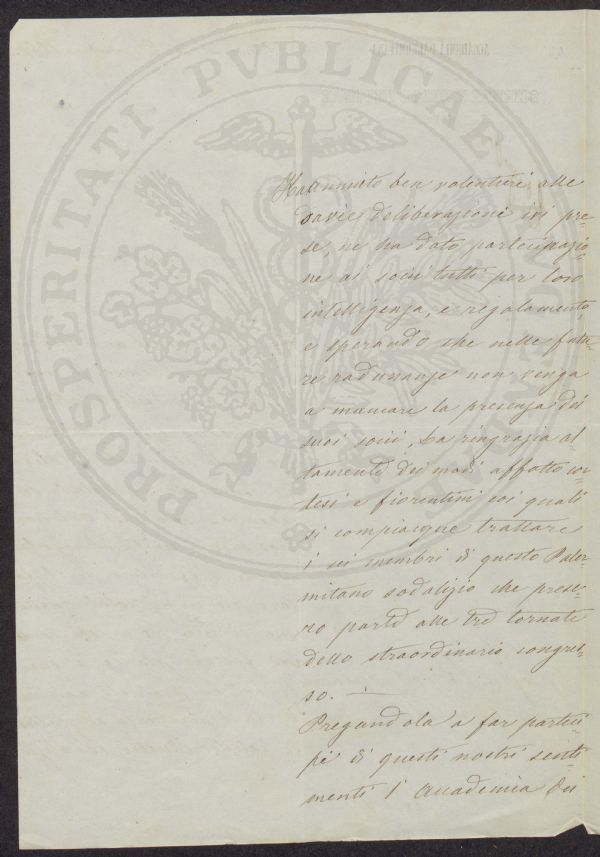 PROSPERITATI PVBLICAE
Ha annuito ben volentieri alle
varie deliberazioni ivi pre-
se, ne ha dato partecipazio-
ne ai socii tutti per loro
intelligenza, e regolamento
e sperando che nelle futu-
re radunanze non venga
a mancare la presenza dei
suoi socii, La ringrazia al-
tamente dei modi affatto cor-
tesi e fiorentini coi quali
si compiacque trattare
i sei membri di questo Paler-
mitano sodalizio che prese-
ro parte alle tre tornate
dello straordinario congres-
so. —
Pregandola a far parteci-
pi di questi nostri senti
menti l'Accademia dei